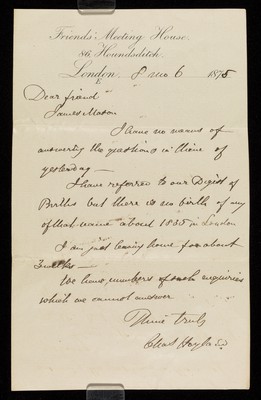 Friends' Meeting House.
86, Houndsditch.
London. 8 mo 6 1875
E
Dear friend
James Mason
I have no means of
answering the questions in thine of
yesterday —
I have referred to our Digest of
Births but there is no birth of any
of that name about 1835 in London
I am just leaving home for about
—
We have numbers of such inquiries
which we cannot answer
Thine truly